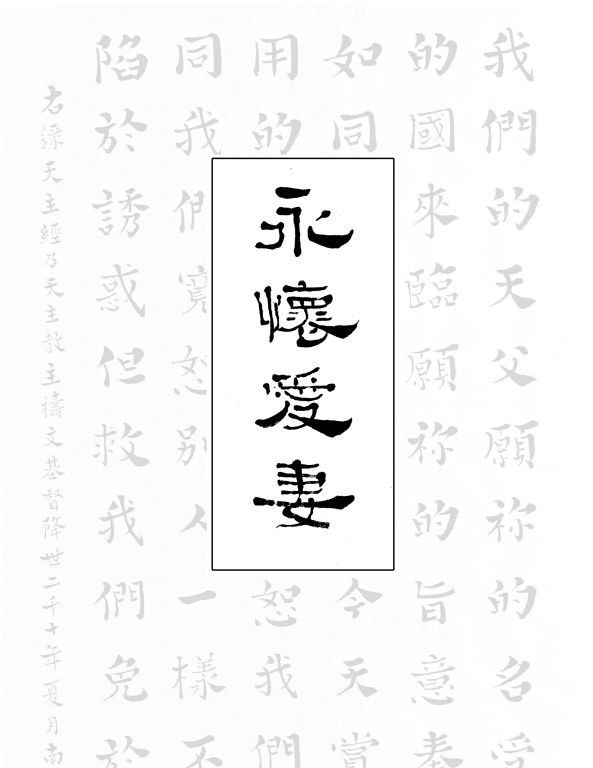 永懷愛妻
我們的天父願祢的名受
的國來臨願祢的旨意奉
如同今天賞
用的恕我們
同我們寬恕別人一樣不
陷於誘惑但救我們免於
右錄天主經乃天主教主禱文基督降世二千十年夏月南